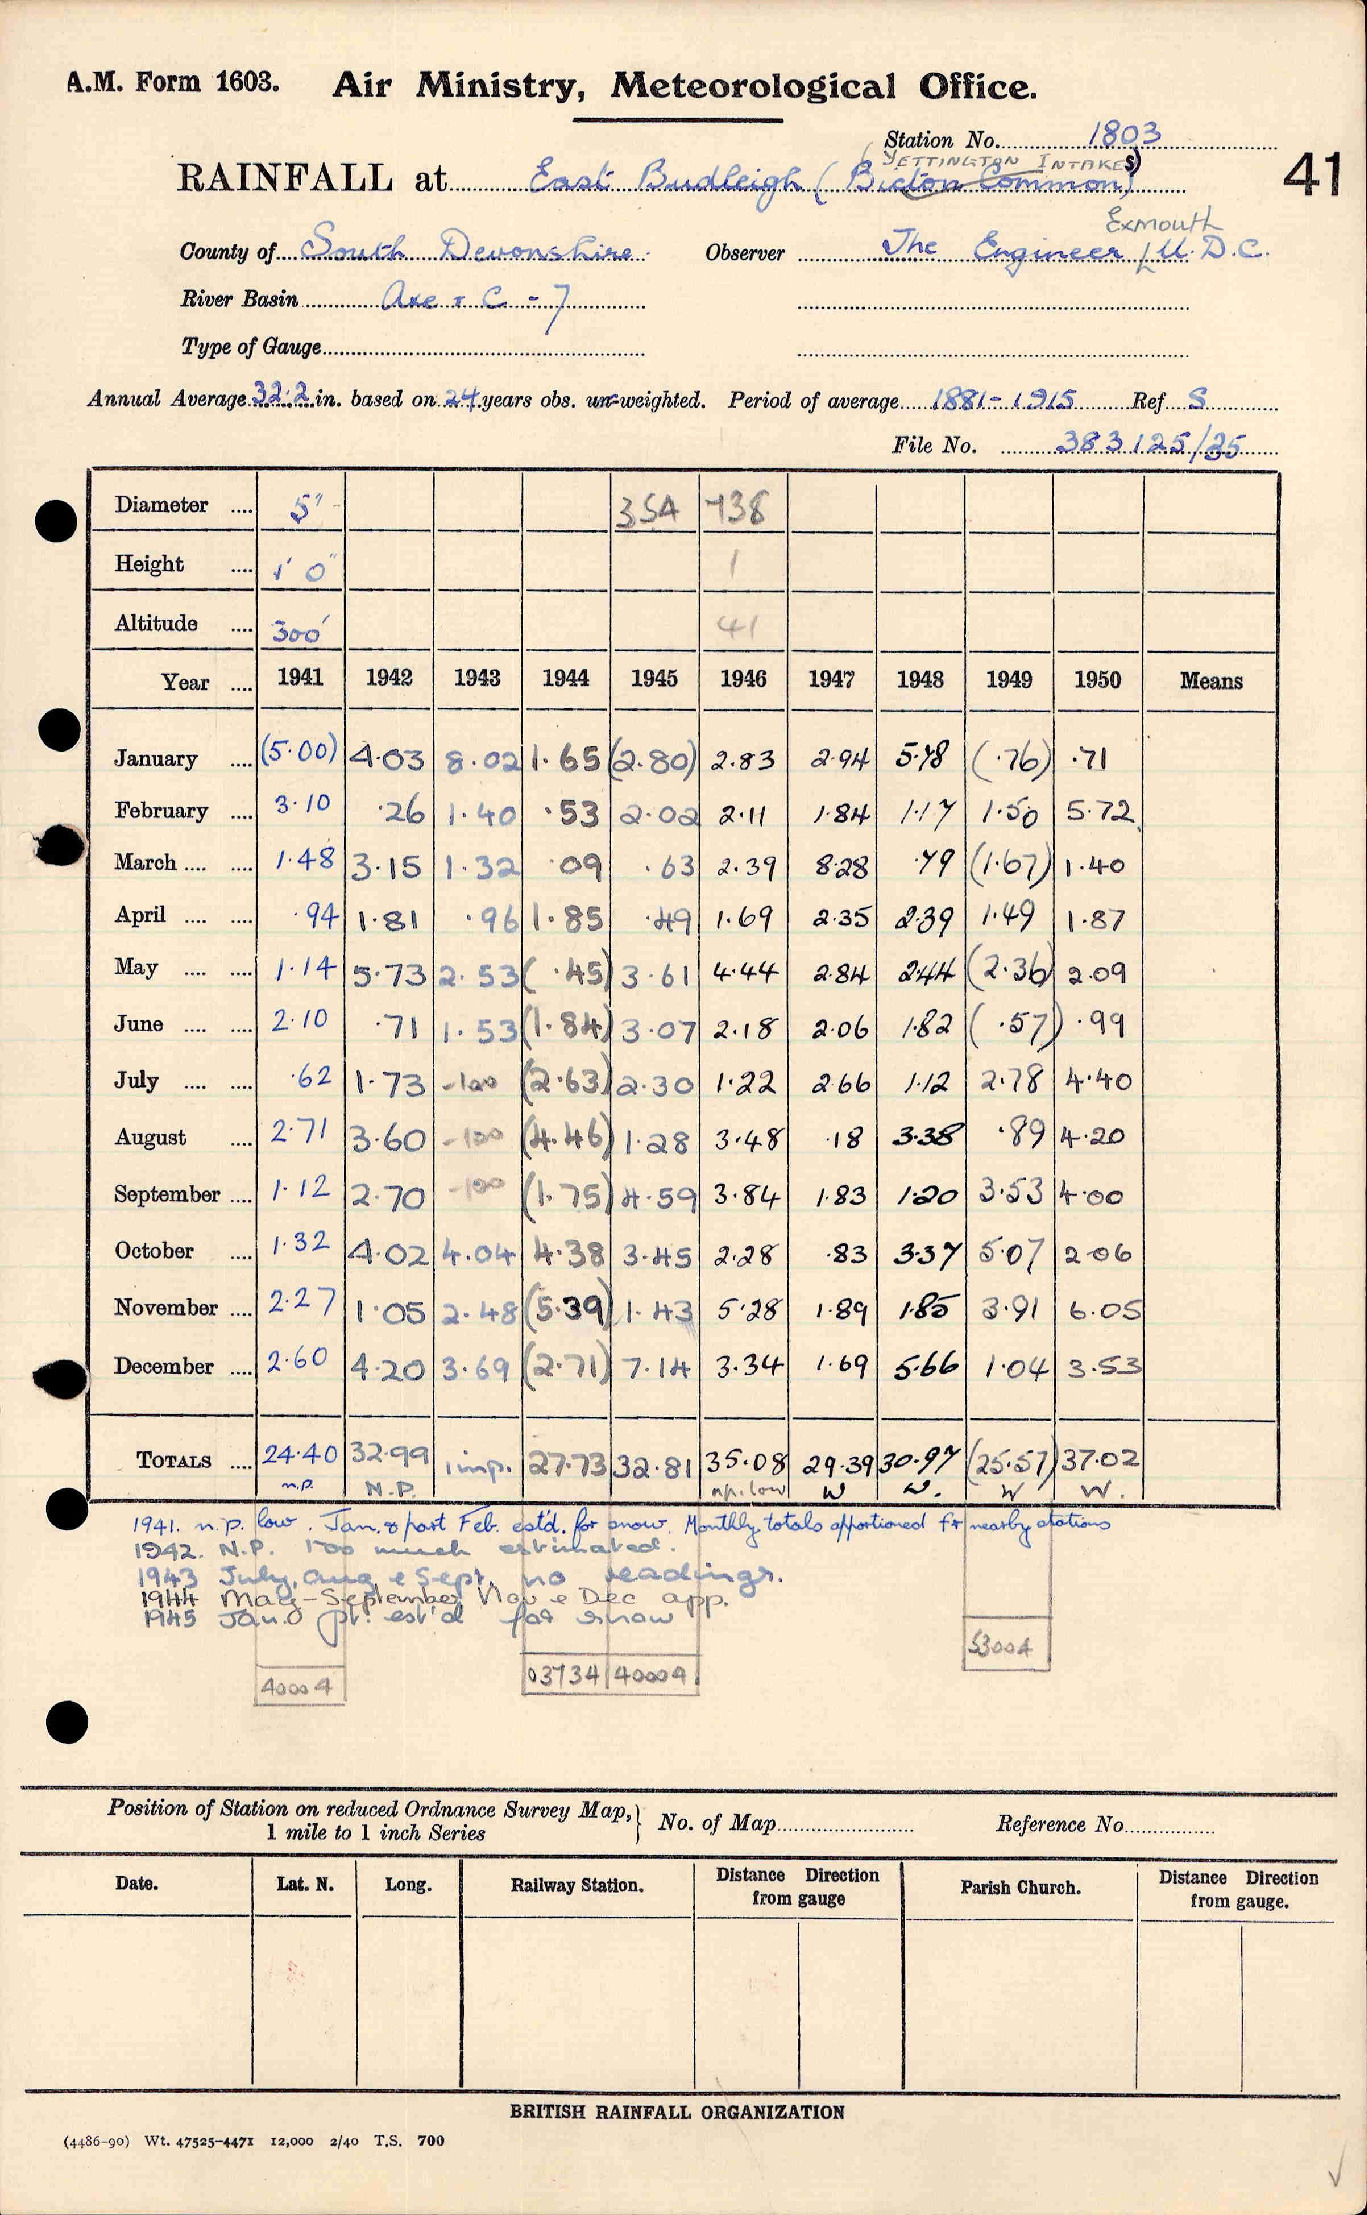 A.M. Form 1603. Air Ministry, Meteorological Office.
Station No. 1803
(YETTINGTON INTAKES)
RAINFALL at East Budleigh (Bicton Common) 41
Exmouth
County of South Devonshire. Observer The Engineer U.D.C.
River Basin Axe & C - 7
Type of Gauge
Annual Average 32.2 in. based on 24 years obs. un-weighted. Period of average 1881-1915 Ref S
File No. 383125/35
Diameter .... 5" 35A 738
Height .... 1' 0" 1
Altitude .... 300' 41
Year .... 1941 1942 1943 1944 1945 1946 1947 1948 1949 1950 Means
January .... (5.00) 4.03 8.02 1.65 (2.80) 2.83 2.94 5.78 (.76) .71
February .... 3.10 .26 1.40 .53 2.02 2.11 1.84 1.17 1.50 5.72
March .... .... 1.48 3.15 1.32 .09 .63 2.39 8.28 .79 (1.67) 1.40
April .... .... .94 1.81 .96 1.85 .49 1.69 2.35 2.39 1.49 1.87
May .... .... 1.14 5.73 2.53 (.45) 3.61 4.44 2.84 2.44 (2.36) 2.09
June .... .... 2.10 .71 1.53 (1.84) 3.07 2.18 2.06 1.82 (.57) .99
July .... .... .62 1.73 -100 (2.63) 2.30 1.22 2.66 1.12 2.78 4.40
August .... 2.71 3.60 -100 (4.46) 1.28 3.48 .18 3.38 .89 4.20
September .... 1.12 2.70 -100 (1.75) 4.59 3.84 1.83 1.20 3.53 4.00
October .... 1.32 4.02 4.04 4.38 3.45 2.28 .83 3.37 5.07 2.06
November .... 2.27 1.05 2.48 (5.39) 1.43 5.28 1.89 1.85 3.91 6.05
December .... 2.60 4.20 3.69 (2.71) 7.14 3.34 1.69 5.66 1.04 3.53
TOTALS .... 24.40 32.99 imp. 27.73 32.81 35.08 29.39 30.97 (25.57) 37.02
n.p. N.P. n.p. low W W. W W.
1941. n.p. low. Jan. & part Feb. est'd. for snow. Monthly totals apportioned fr nearby stations
1942. N.P. Too much estimated.
1943 July, Aug & Sept. no readings.
1944 May-September Nov & Dec app.
1945 Jan. pt. est'd for snow
53004
40004 03734 40004
Position of Station on reduced Ordnance Survey Map, 1 mile to 1 inch Series } No. of Map Reference No
Date. Lat. N. Long. Railway Station. Distance Direction from gauge Parish Church. Distance Direction from gauge.
BRITISH RAINFALL ORGANIZATION
(4486-90) Wt. 47525-4471 12,000 2/40 T.S. 700